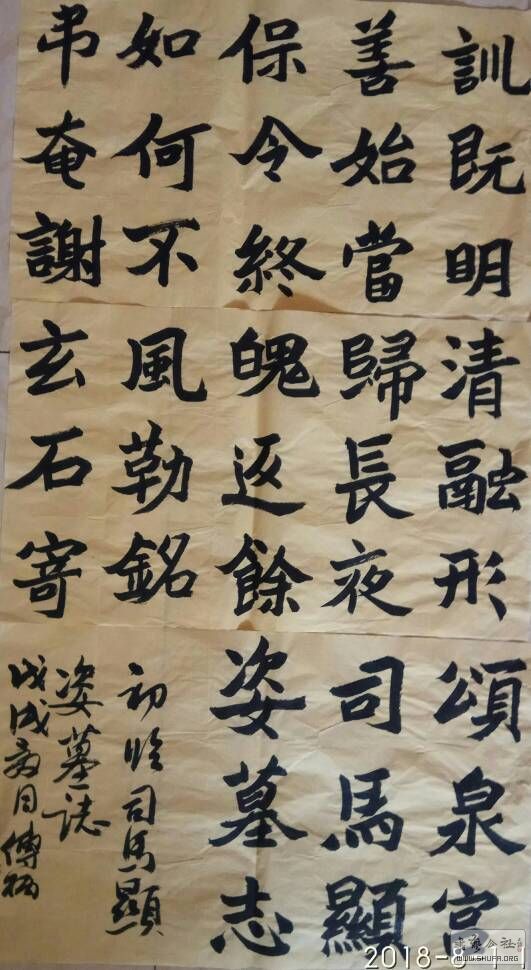 訓既明
善始當
保令終
如何不
弔奄謝
清融形
歸長夜
魄返餘
風勒銘
玄石寄
頌泉宮
司馬顯
姿墓志
初臨司馬顯
姿墓誌
戊戌月傅
2018-8-11
WWW.SHUFA.ORG